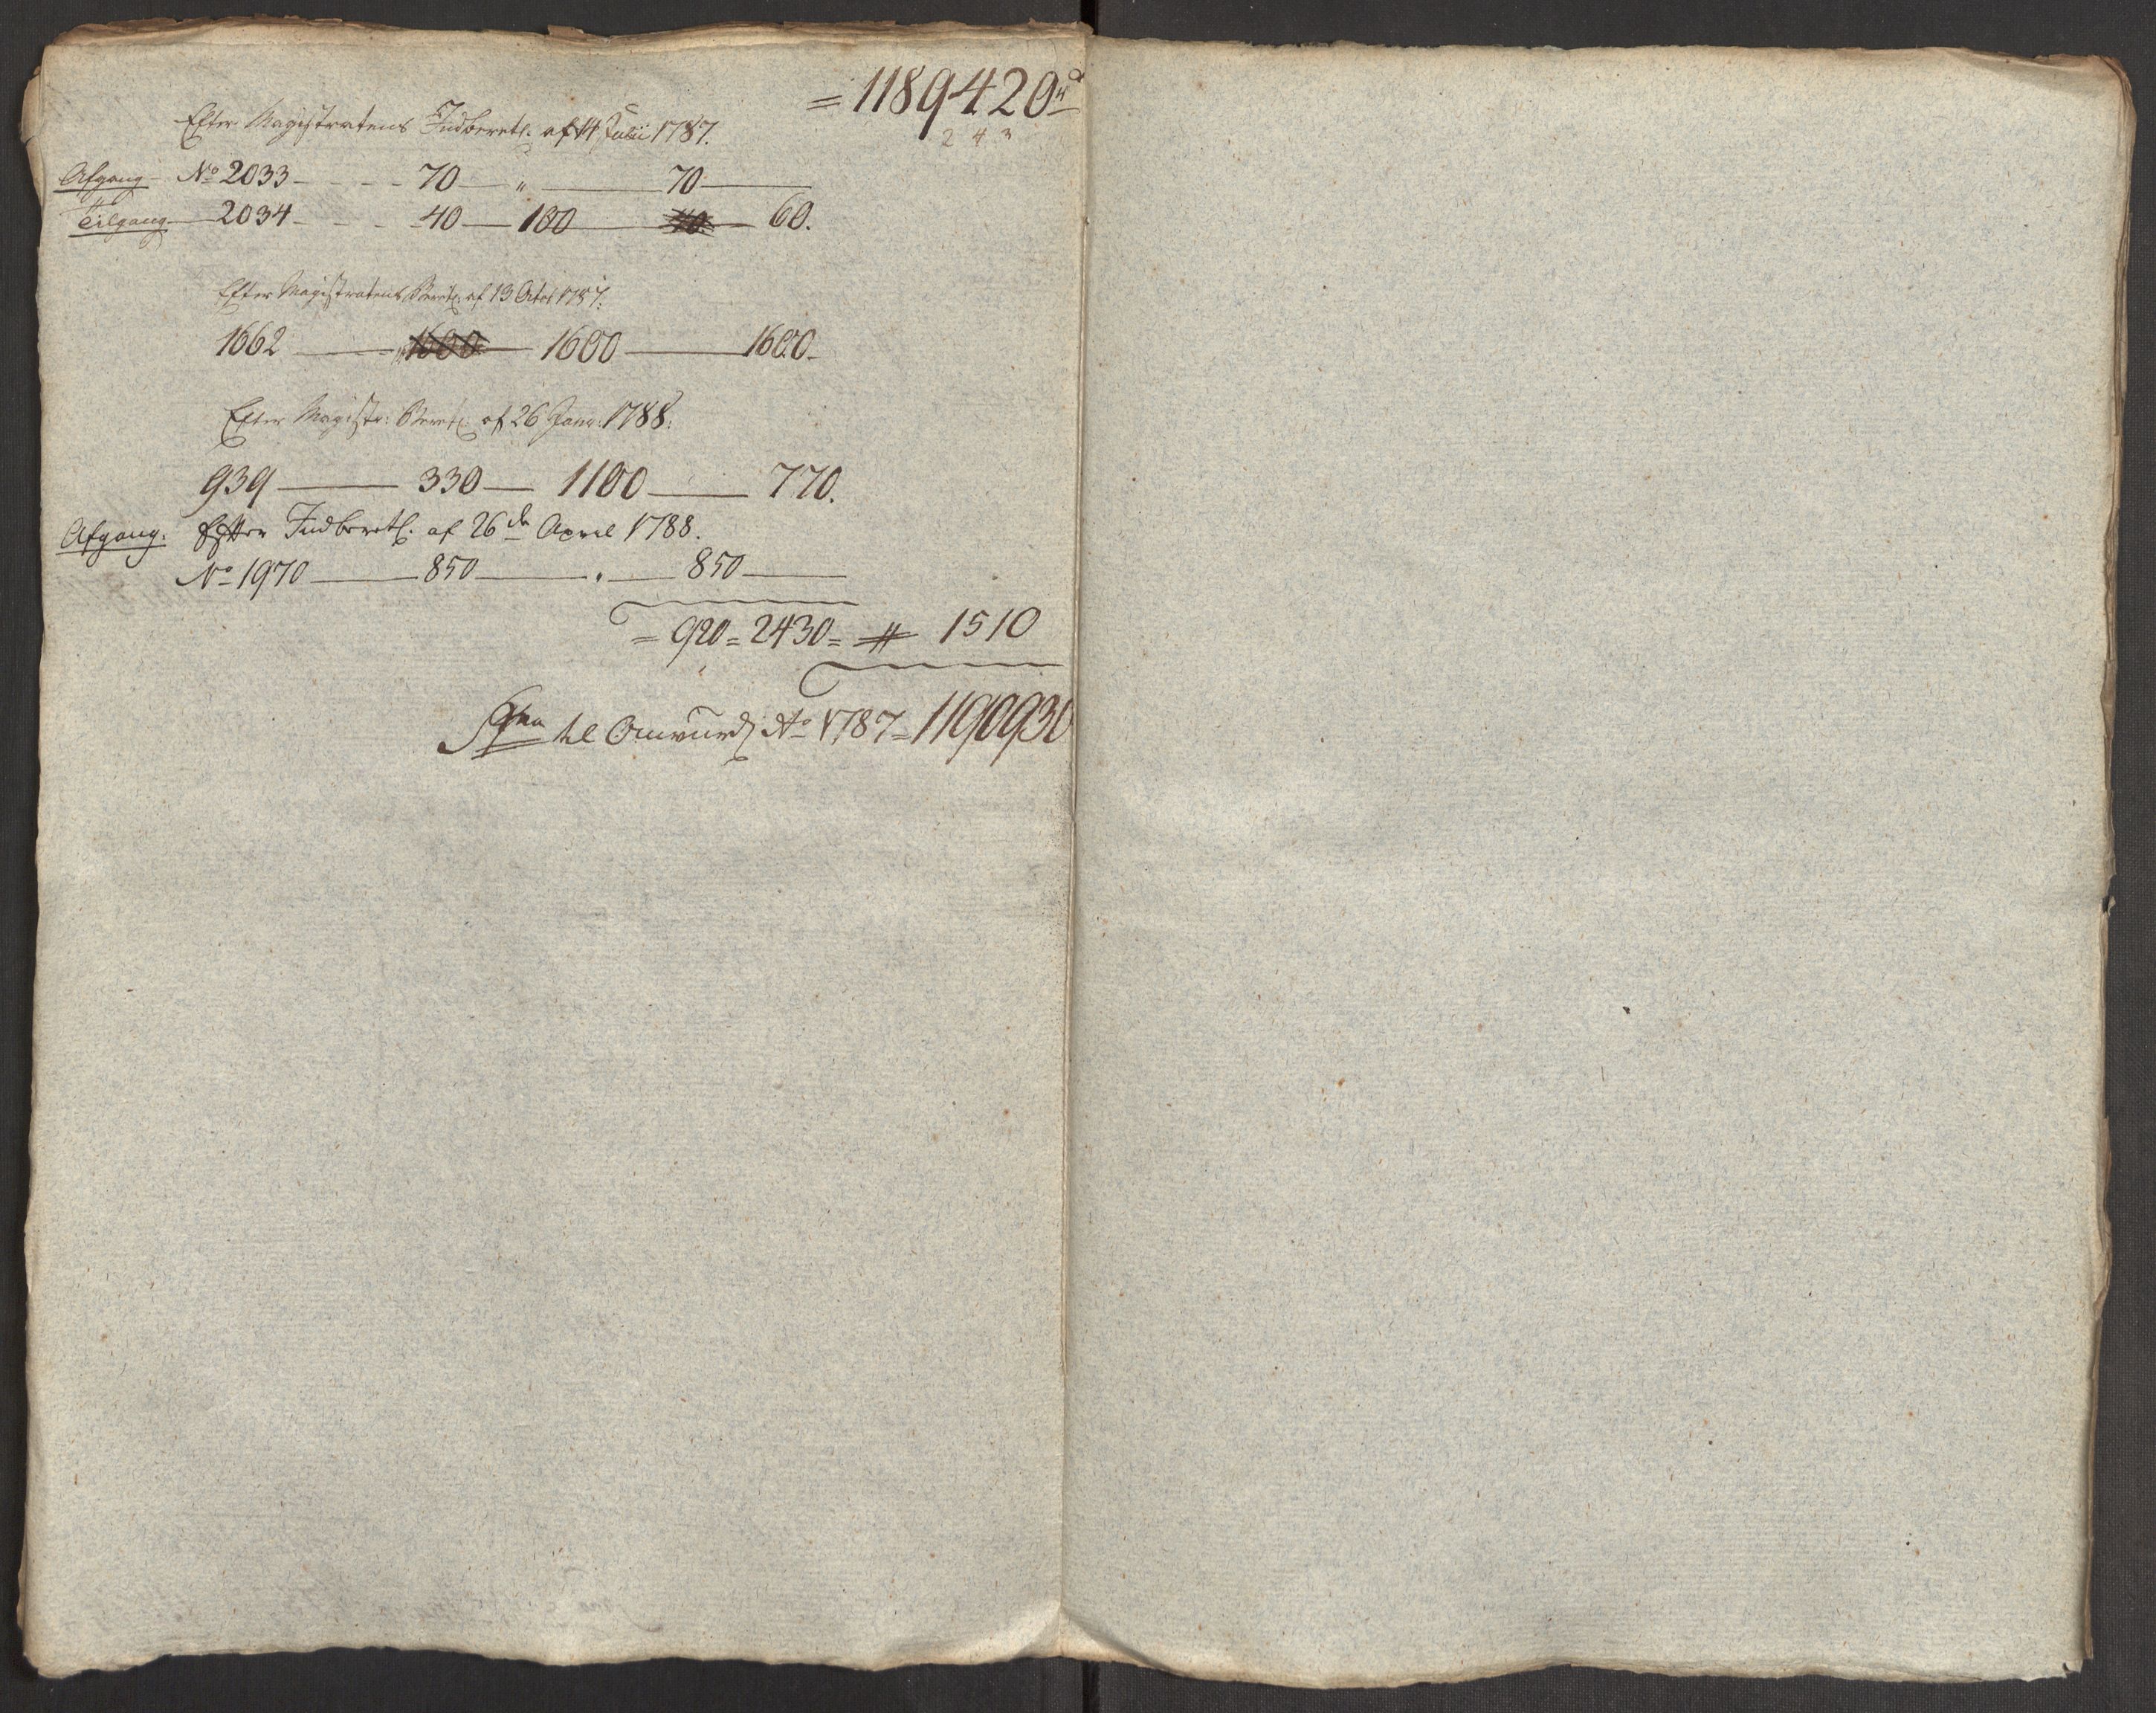 = 1189420 rd
2 4 3
Efter Magistratens Indberetl. af 14 Julii 1787.
Afgang – No 2033 – – – – 70 — " ——— 70 ———
Tilgang — 2034 – – – – 40 — 100 ——— 40 — 60.
Efter Magistratens Beretl. af 13 Octob 1787.
1662 ——— " 1600 — 1600 ——— 1600 –
Efter Magistr: Beretl. af 26 Janr: 1788.
939 ——— 330 — 1100 ——— 770.
Afgang. Efter Indberetl. af 26de April 1788.
No 1970 ——— 850 ——— " —— 850 ———
= 920 = 2430 = # 1510
Sma til Ao 1787 = 1190930